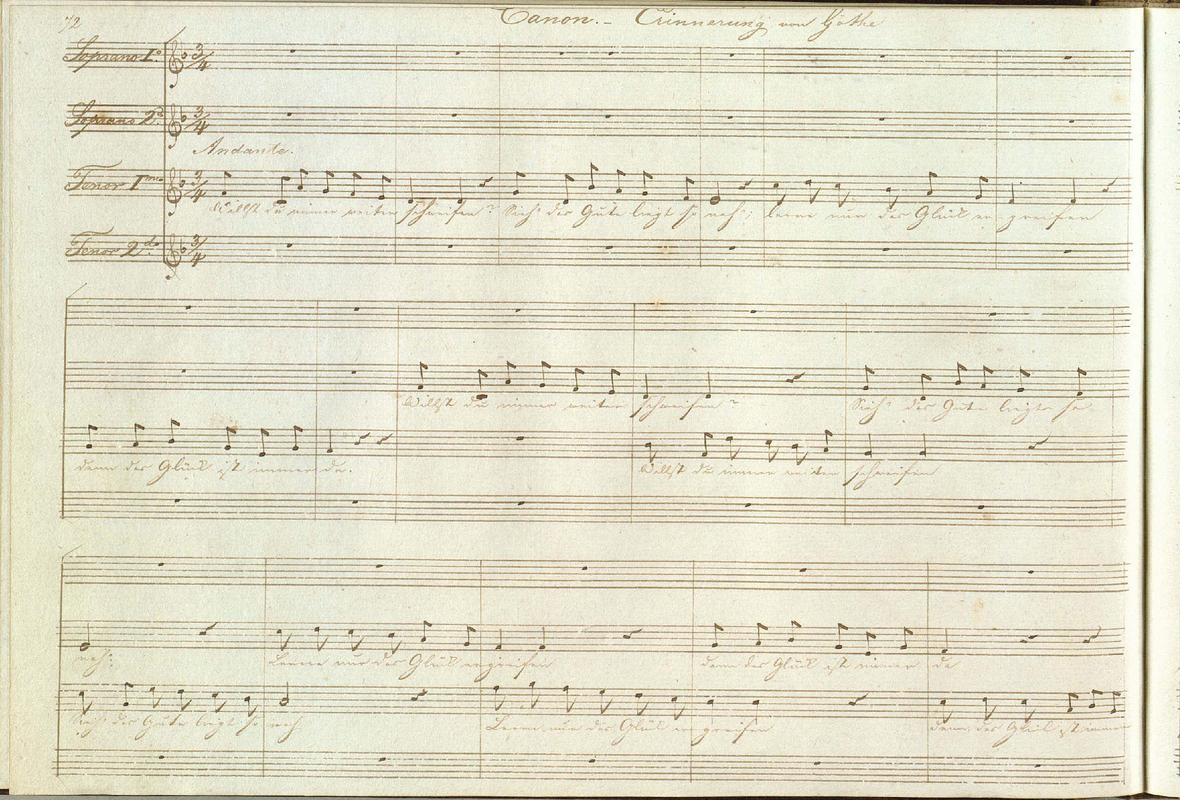 72
Canon. - Erinnerung von Göthe
Soprano 1º
Soprano 2º
Andante.
Tenor 1mo
Willst du immer weiter schweifen? Sieh! das Gute liegt so nah'; lerne nur das Glück ergreifen
Tenor 2do
Willst du immer weiter schweifen? Sieh! das Gute liegt so
denn das Glück ist immer da.
Willst du immer weiter schweifen
nah!
Lerne nur das Glück ergreifen denn das Glück ist immer da
Sieh! das Gute liegt so nah Lerne nur das Glück ergreifen denn das Glück ist immer